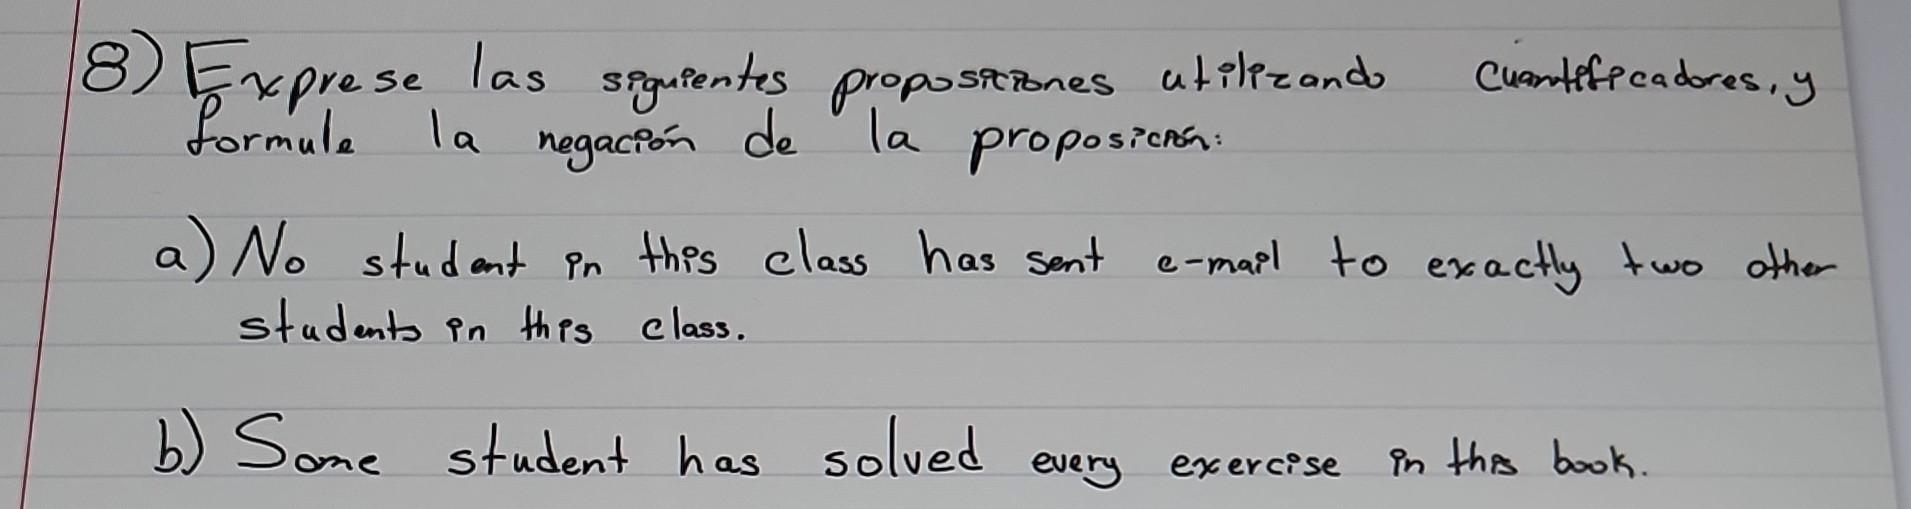 8) Exprese las siguientes proposiciones utilizando cuantificadores, y
formule la negación de la proposición:
a) No student in this class has sent e-mail to exactly two other
students in this class.
b) Some student has solved every exercise in this book.